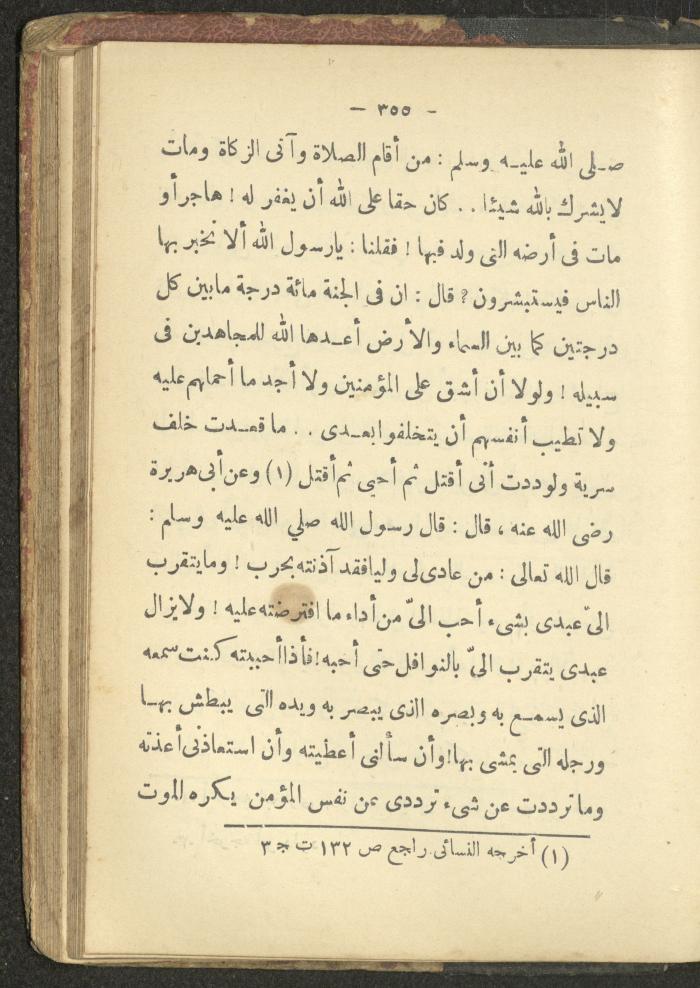 - ٣٥٥ -
صلى الله عليه وسلم : من أقام الصلاة وآتى الزكاة ومات
لايشرك بالله شيئا .. كان حقا على الله أن يغفر له ! هاجر أو
مات فى أرضه التى ولد فيها ! فقلنا : يارسول الله ألا نخبر بها
الناس فيستبشرون ؟ قال : ان فى الجنة مائة درجة مابين كل
درجتين كما بين السماء والأرض أعدها الله للمجاهدين فى
سبيله ! ولولا أن أشق على المؤمنين ولا أجد ما أحملهم عليه
ولا تطيب أنفسهم أن يتخلفوا بعدى .. ما قعدت خلف
سرية ولوددت أنى أقتل ثم أحيى ثم أقتل (١) وعن أبى هريرة
رضى الله عنه ، قال : قال رسول الله صلي الله عليه وسلم :
قال الله تعالى : من عادى لى وليا فقد آذنته بحرب ! ومايتقرب
الىّ عبدى بشىء أحب الىّ من أداء ما افترضته عليه ! ولايزال
عبدى يتقرب الىّ بالنوافل حتى أحبه ! فأذا أحببته كنت سمعه
الذى يسمع به وبصره الذى يبصر به ويده التى يبطش بها
ورجله التى يمشى بها ! وأن سألنى أعطيته وأن استعاذنى أعذته
وما ترددت عن شىء ترددى عن نفس المؤمن يكره الموت
(١) أخرجه النسائى راجع ص ١٣٢ ت ج ٣